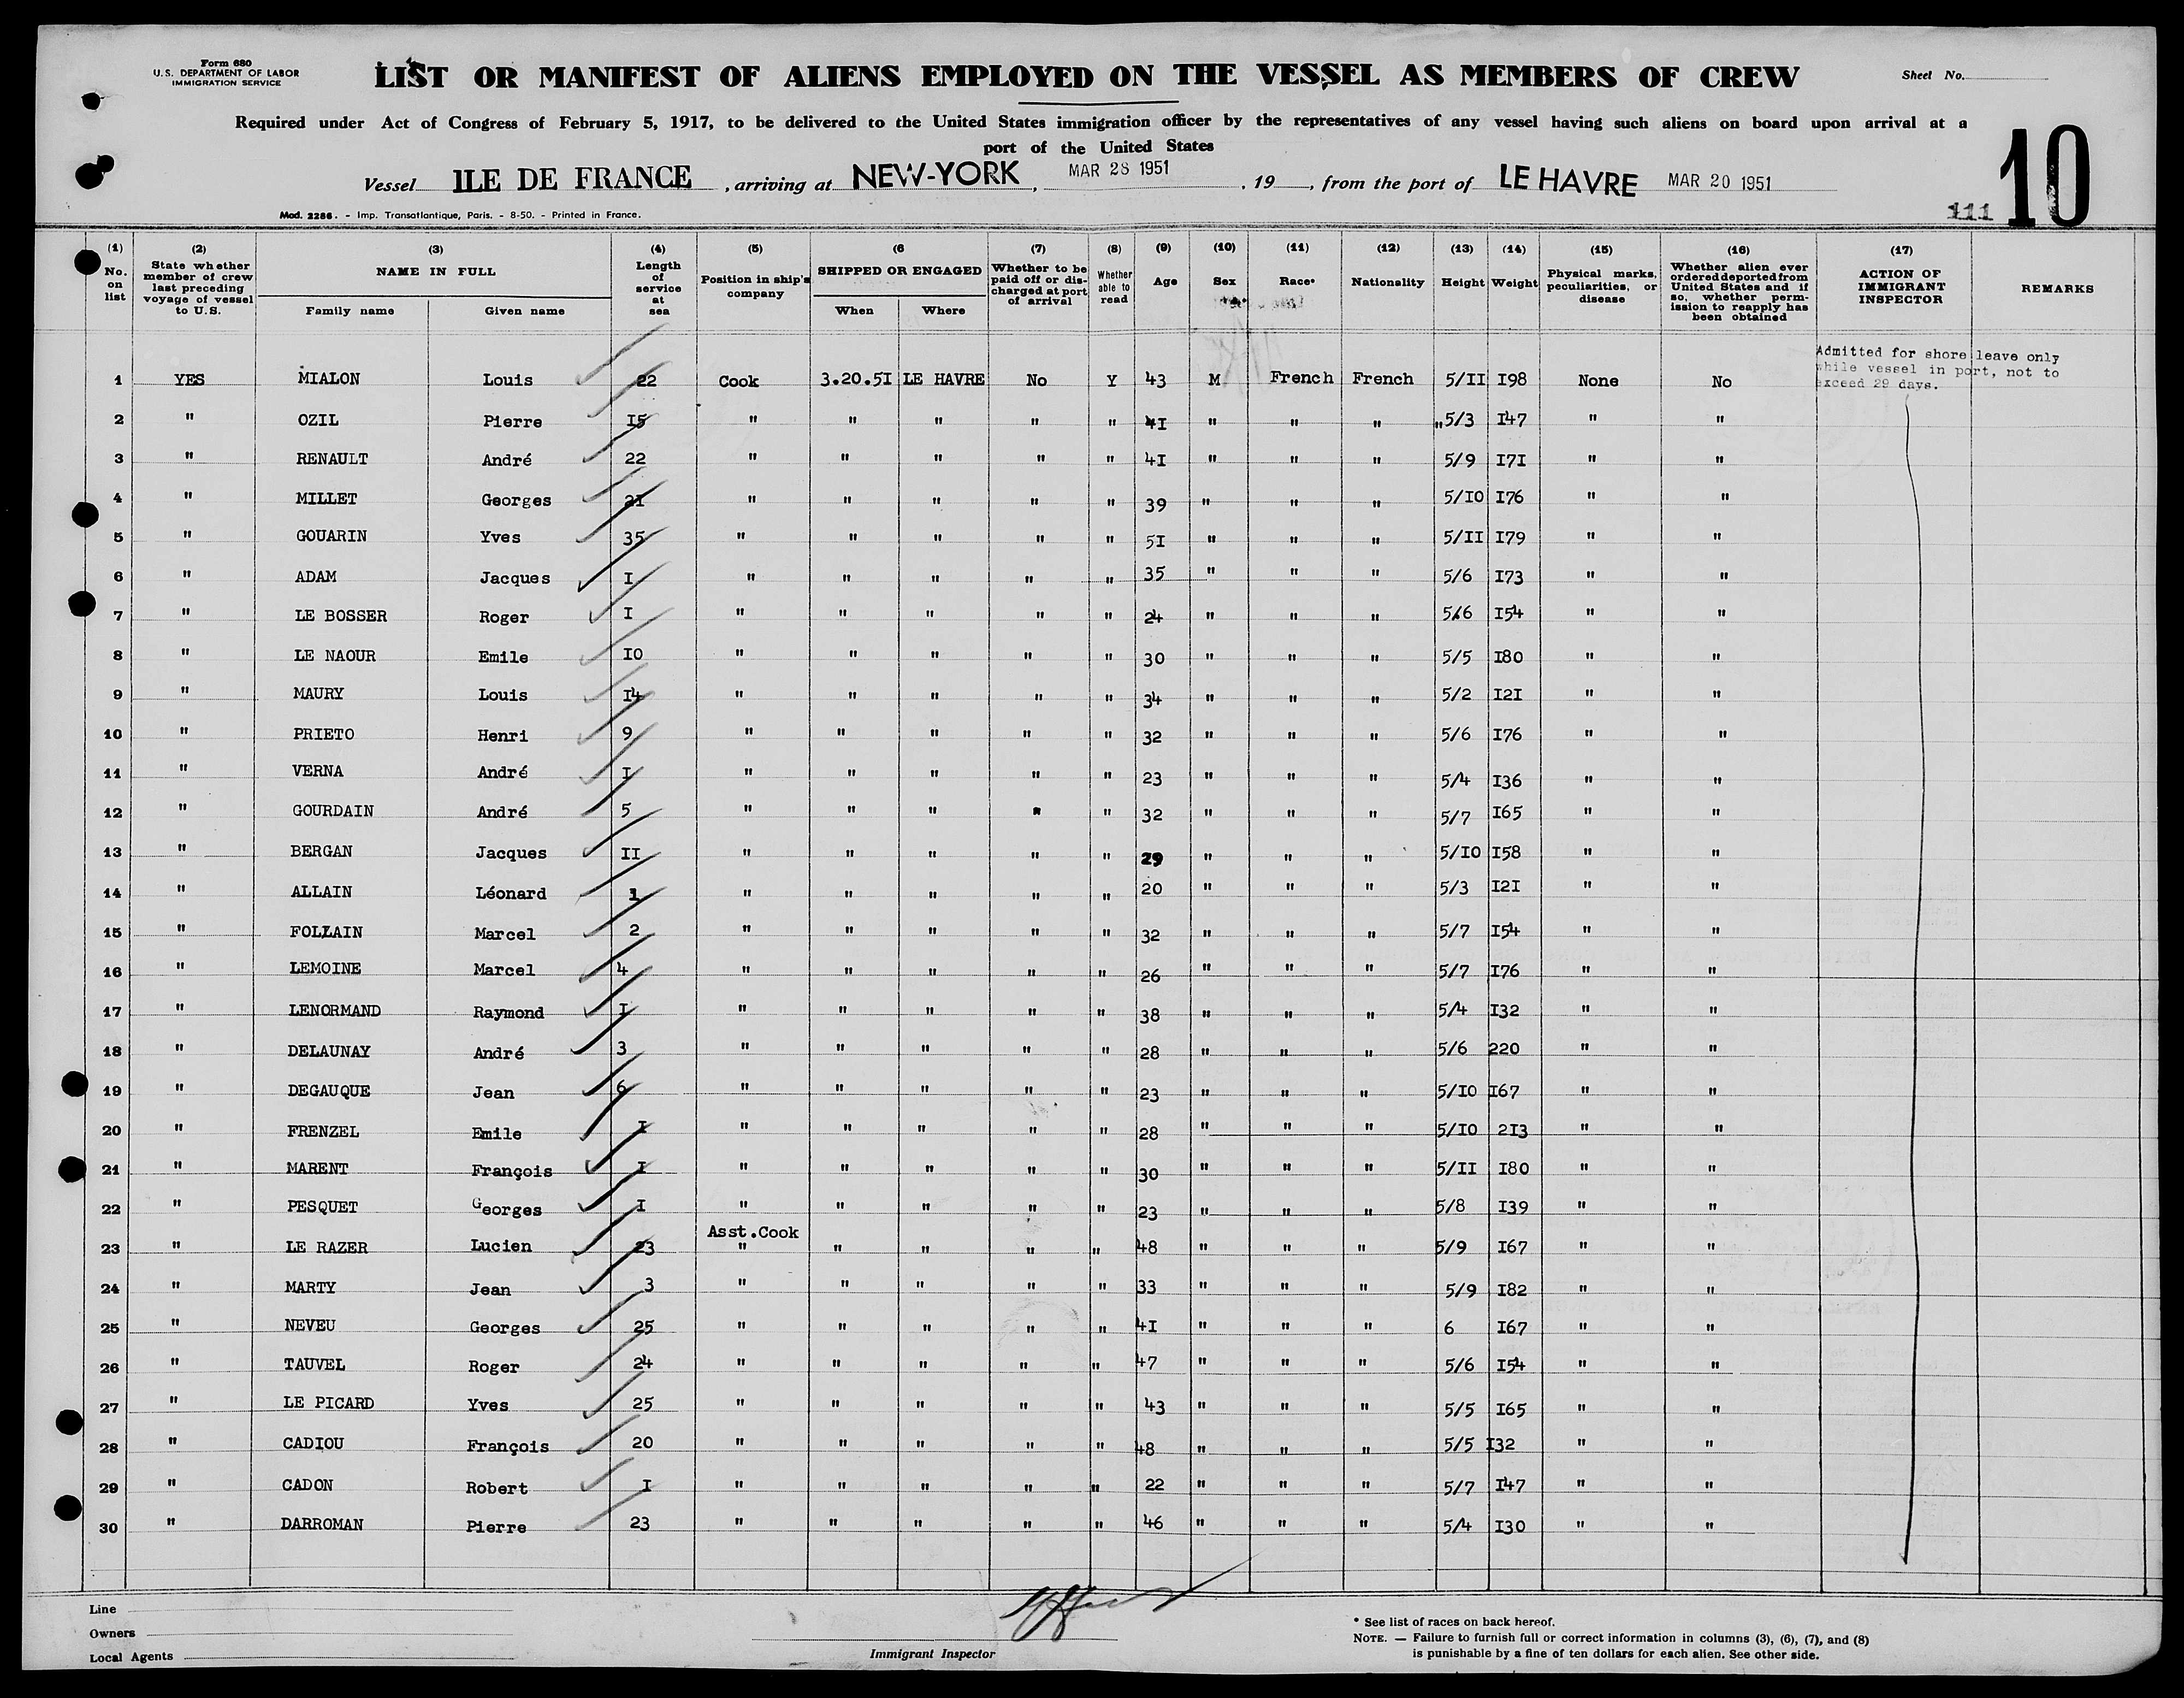 Form 680
U.S. DEPARTMENT OF LABOR
IMMIGRATION SERVICE
LIST OR MANIFEST OF ALIENS EMPLOYED ON THE VESSEL AS MEMBERS OF CREW
Sheet No.
Required under Act of Congress of February 5, 1917, to be delivered to the United States immigration officer by the representatives of any vessel having such aliens on board upon arrival at a
port of the United States
10
Vessel ILE DE FRANCE , arriving at NEW-YORK , MAR 28 1951 , 19 , from the port of LE HAVRE MAR 20 1951
Mod. 2286. - Imp. Transatlantique, Paris. - 8-50. - Printed in France.
111
(1) (2) (3) (4) (5) (6 (7) (8) (9) (10) (11) (12) (13) (14) (15) (16) (17)
No. on list
State whether member of crew last preceding voyage of vessel to U.S.
NAME IN FULL
Family name Given name
Length of service at sea
Position in ship's company
SHIPPED OR ENGAGED
When Where
Whether to be paid off or discharged at port of arrival
Whether able to read
Age
Sex
Race*
Nationality
Height
Weight
Physical marks, peculiarities, or disease
Whether alien ever ordered deported from United States and if so, whether permission to reapply has been obtained
ACTION OF IMMIGRANT INSPECTOR
REMARKS
Admitted for shore leave only
while vessel in port, not to
exceed 29 days.
1 YES MIALON Louis 22 Cook 3.20.5I LE HAVRE No Y 43 M French French 5/II I98 None No
2 " OZIL Pierre I5 " " " " " 4I " " " "5/3 I47 " "
3 " RENAULT André 22 " " " " " 4I " " " 5/9 I7I " "
4 " MILLET Georges 2I " " " " " 39 " " " 5/I0 I76 " "
5 " GOUARIN Yves 35 " " " " " 5I " " " 5/II I79 " "
6 " ADAM Jacques I " " " " " 35 " " " 5/6 I73 " "
7 " LE BOSSER Roger I " " " " " 24 " " " 5/6 I54 " "
8 " LE NAOUR Emile I0 " " " " " 30 " " " 5/5 I80 " "
9 " MAURY Louis I4 " " " " " 34 " " " 5/2 I2I " "
10 " PRIETO Henri 9 " " " " " 32 " " " 5/6 I76 " "
11 " VERNA André I " " " " " 23 " " " 5/4 I36 " "
12 " GOURDAIN André 5 " " " " " 32 " " " 5/7 I65 " "
13 " BERGAN Jacques II " " " " " 29 " " " 5/I0 I58 " "
14 " ALLAIN Léonard 1 " " " " " 20 " " " 5/3 I2I " "
15 " FOLLAIN Marcel 2 " " " " " 32 " " " 5/7 I54 " "
16 " LEMOINE Marcel 4 " " " " " 26 " " " 5/7 I76 " "
17 " LENORMAND Raymond I " " " " " 38 " " " 5/4 I32 " "
18 " DELAUNAY André 3 " " " " " 28 " " " 5/6 220 " "
19 " DEGAUQUE Jean 6 " " " " " 23 " " " 5/I0 I67 " "
20 " FRENZEL Emile I " " " " " 28 " " " 5/I0 2I3 " "
21 " MARENT François I " " " " " 30 " " " 5/II I80 " "
22 " PESQUET Georges I " " " " " 23 " " " 5/8 I39 " "
Asst.Cook
23 " LE RAZER Lucien 23 " " " " " 48 " " " 5/9 I67 " "
24 " MARTY Jean 3 " " " " " 33 " " " 5/9 I82 " "
25 " NEVEU Georges 25 " " " " " 4I " " " 6 I67 " "
26 " TAUVEL Roger 24 " " " " " 47 " " " 5/6 I54 " "
27 " LE PICARD Yves 25 " " " " " 43 " " " 5/5 I65 " "
28 " CADIOU François 20 " " " " " 48 " " " 5/5 I32 " "
29 " CADON Robert I " " " " " 22 " " " 5/7 I47 " "
30 " DARROMAN Pierre 23 " " " " " 46 " " " 5/4 I30 " "
Line
Owners
Local Agents
Immigrant Inspector
* See list of races on back hereof.
NOTE. — Failure to furnish full or correct information in columns (3), (6), (7), and (8)
is punishable by a fine of ten dollars for each alien. See other side.